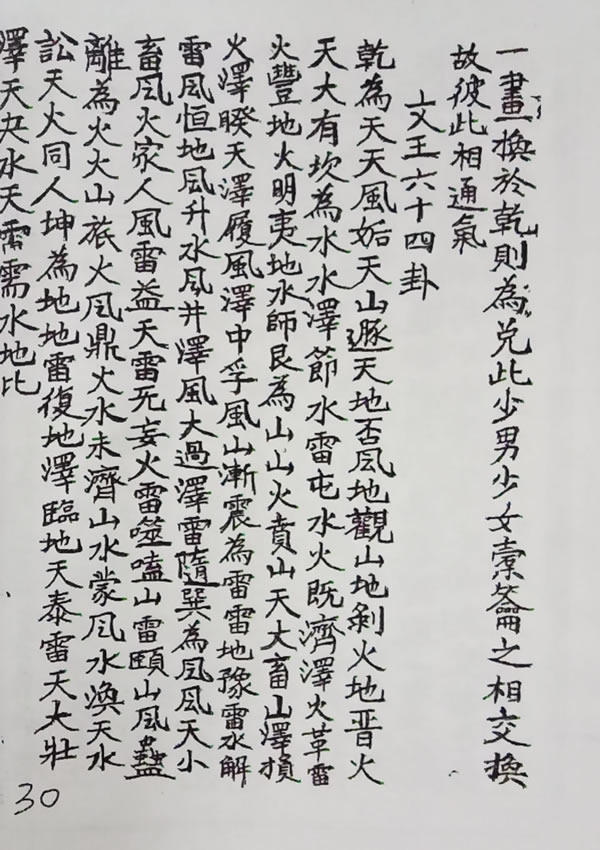 一畫換於乾則為兌此少男少女橐籥之相交換
故彼此相通氣
文王六十四卦
乾為天天風姤天山遯天地否風地觀山地剝火地晋火
天大有坎為水水澤節水雷屯水火既濟澤火革雷
火豐地火明夷地水師艮為山山火賁山天大畜山澤損
火澤睽天澤履風澤中孚風山漸震為雷雷地豫雷水解
雷風恒地風升水風井澤風大過澤雷隨巽為風風天小
畜風火家人風雷益天雷无妄火雷噬嗑山雷頤山風蠱
離為火火山旅火風鼎火水未濟山水蒙風水渙天水
訟天火同人坤為地地雷復地澤臨地天泰雷天大壯
澤天夬水天需水地比
30